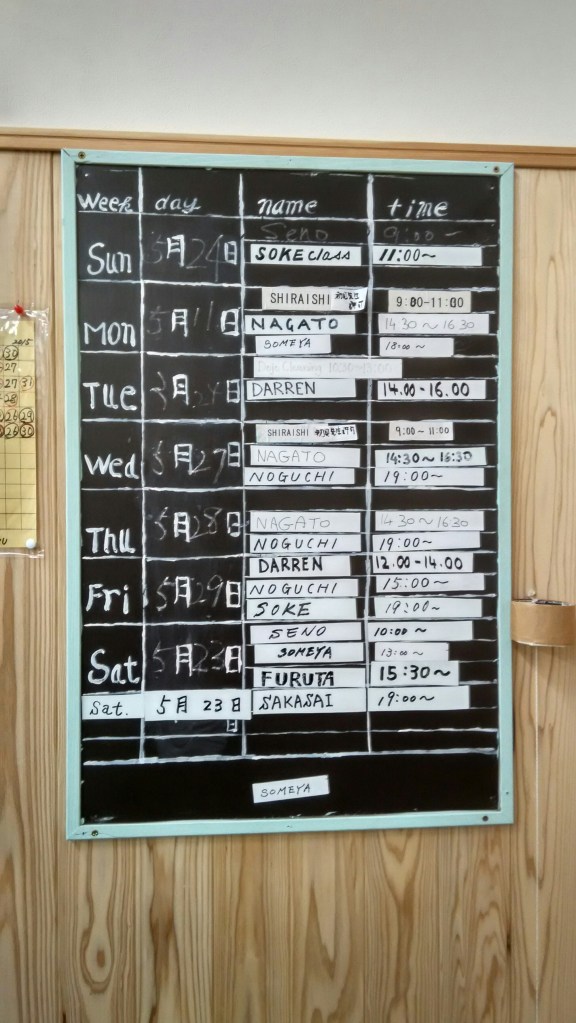 Week day name time
Seno 9:00~
Sun 5月24日 SOKE class 11:00~
SHIRAISHI 9:00-11:00
Mon 5月11日 NAGATO 14:30~16:30
SOMEYA 18:00~
Tue 月 日 DARREN 14.00-16.00
SHIRAISHI 9:00~11:00
Wed 5月27日 NAGATO 14:30~16:30
NOGUCHI 19:00~
Thu 5月28日 NAGATO 14:30~16:30
NOGUCHI 19:00~
DARREN 12.00-14.00
Fri 5月29日 NOGUCHI 15:00~
SOKE 19:00~
SENO 10:00~
Sat 5月23日 SOMEYA 13:00~
FURUTA 15:30~
Sat. 5月 23日 SAKASAI 19:00~
日
SOMEYA
2015
30
27
27 31
28
26 29
26 30